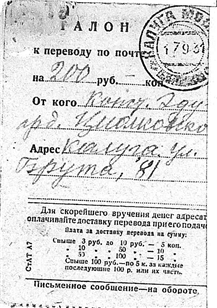 ТАЛОН
к переводу по почте
на 200 руб. — коп.
От кого Конст. Эду-
ард. Циолковско
Адрес Калуга, ул.
Брута, 81
КАЛУГА
Для скорейшего вручения денег адресат
оплачивайте доставку перевода при его подаче
Плата за доставку перевода на сумму:
Свыше 3 руб. до 10 руб. — 5 коп.
" 10 " " 50 " — 10 "
" 53 " " 100 " — 15 "
Свыше 100 руб. — по 5 к. за каждые
последующие 100 р. или их часть.
Письменное сообщение — на обороте.